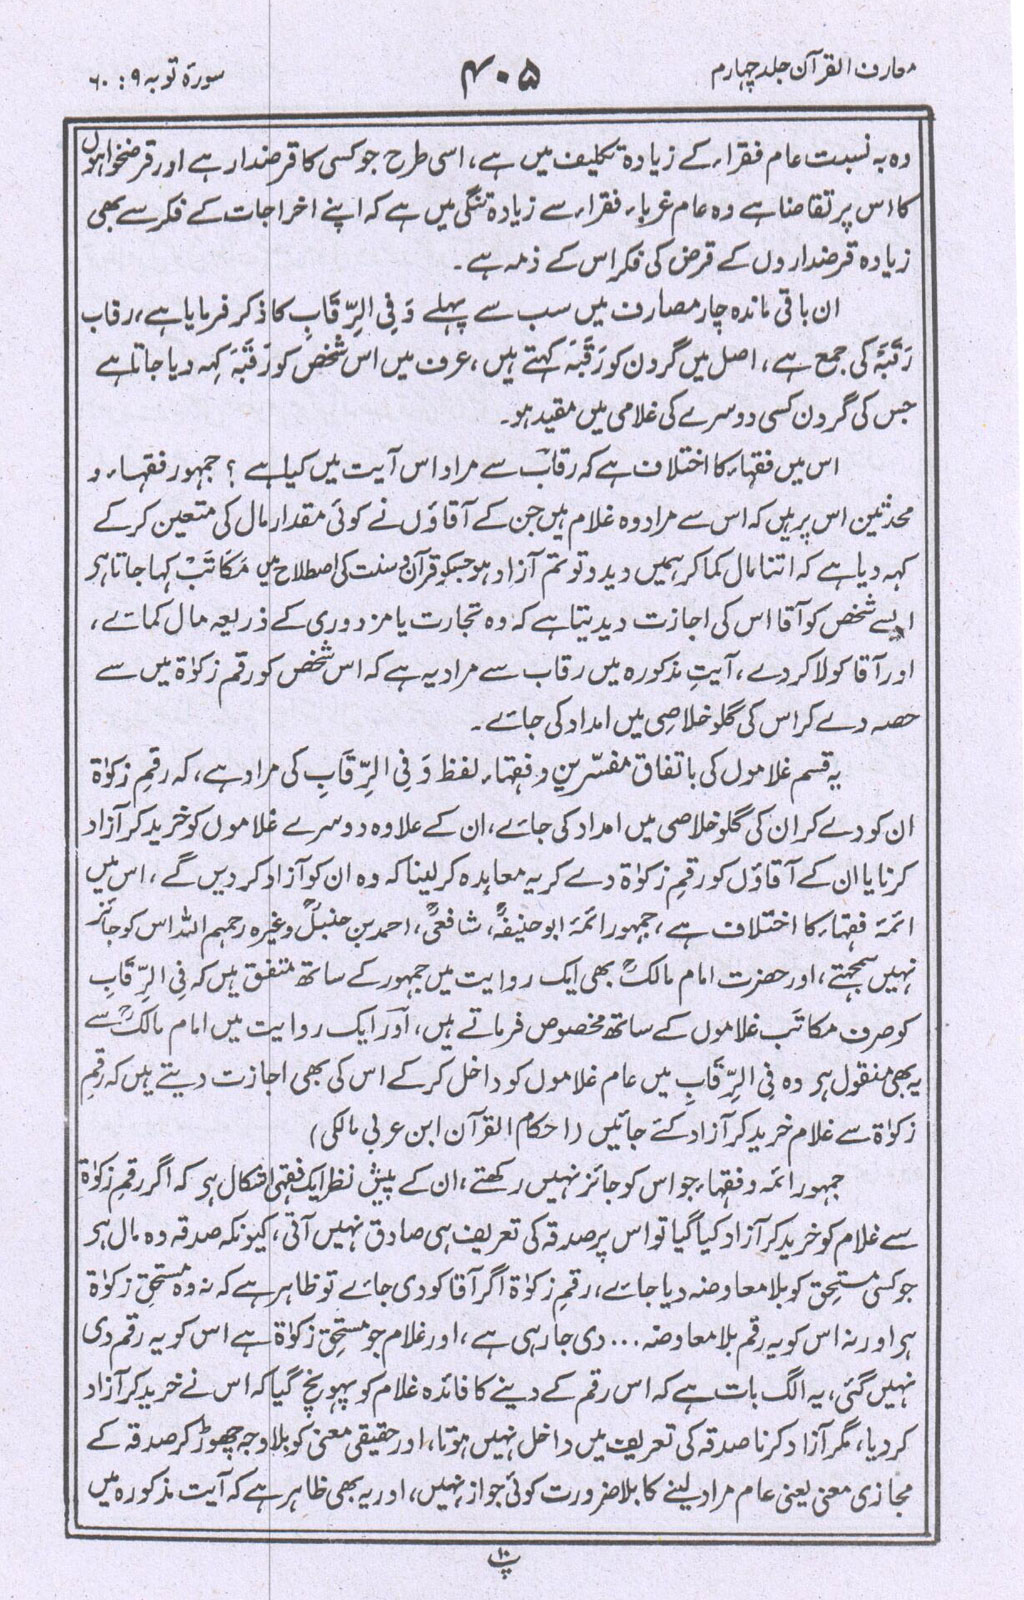 معارف القرآن جلد چہارم
۴۰۵
سورۃ توبہ ۹ : ۶۰
وہ بہ نسبت عام فقراء کے زیادہ تکلیف میں ہے، اسی طرح جو کسی کا قرضدار ہے اور قرضخواہوں
کا اس پر تقاضا ہے وہ عام غرباء فقراء سے زیادہ تنگی میں ہے کہ اپنے اخراجات کے فکر سے بھی
زیادہ قرضداروں کے قرض کی فکر اس کے ذمہ ہے۔
ان باقی ماندہ چار مصارف میں سب سے پہلے وَفِی الرِّقَابِ کا ذکر فرمایا ہے، رقاب
رَقَبَۃٌ کی جمع ہے، اصل میں گردن کو رَقَبَہ کہتے ہیں، عرف میں اس شخص کو رَقَبَہ کہہ دیا جاتا ہے
جس کی گردن کسی دوسرے کی غلامی میں مقید ہو۔
اس میں فقہاء کا اختلاف ہے کہ رقاب سے مراد اس آیت میں کیا ہے؟ جمہور فقہاء و
محدثین اس پر ہیں کہ اس سے مراد وہ غلام ہیں جن کے آقاؤں نے کوئی مقدار مال کی متعین کر کے
کہہ دیا ہے کہ اتنا مال کما کر ہمیں دیدو تو تم آزاد ہو جسکو قرآن و سنت کی اصطلاح میں مکاتَب کہا جاتا ہر
ایسے شخص کو آقا اس کی اجازت دیدیتا ہے کہ وہ تجارت یا مزدوری کے ذریعہ مال کمائے،
اور آقا کو لا کر دے، آیتِ مذکورہ میں رقاب سے مراد یہ ہے کہ اس شخص کو رقم زکوٰۃ میں سے
حصہ دے کر اس کی گلوخلاصی میں امداد کی جائے۔
یہ قسم غلاموں کی باتفاق مفسّرین و فقہاء لفظ وَفِی الرِّقَابِ کی مراد ہے، کہ رقمِ زکوٰۃ
ان کو دے کر ان کی گلوخلاصی میں امداد کی جائے، ان کے علاوہ دوسرے غلاموں کو خرید کر آزاد
کرنا یا ان کے آقاؤں کو رقمِ زکوٰۃ دے کر یہ معاہدہ کر لینا کہ وہ ان کو آزاد کر دیں گے، اس میں
ائمۂ فقہاء کا اختلاف ہے، جمہور ائمۂ ابوحنیفہؒ، شافعیؒ، احمد بن حنبلؒ وغیرہ رحمہم اللہ اس کو جائز
نہیں سمجھتے، اور حضرت امام مالکؒ بھی ایک روایت میں جمہور کے ساتھ متفق ہیں کہ فِی الرِّقَابِ
کو صرف مکاتَب غلاموں کے ساتھ مخصوص فرماتے ہیں، اور ایک روایت میں امام مالکؒ سے
یہ بھی منقول ہر وہ فِی الرِّقَابِ میں عام غلاموں کو داخل کر کے اس کی بھی اجازت دیتے ہیں کہ رقمِ
زکوٰۃ سے غلام خرید کر آزاد کئے جائیں (احکام القرآن ابن عربی مالکی)
جمہور ائمہ و فقہاء جو اس کو جائز نہیں رکھتے، ان کے پیشِ نظر ایک فقہی اشکال ہر کہ اگر رقمِ زکوٰۃ
سے غلام کو خرید کر آزاد کیا گیا تو اس پر صدقہ کی تعریف ہی صادق نہیں آتی، کیونکہ صدقہ وہ مال ہر
جو کسی مستحق کو بلا معاوضہ دیا جائے، رقمِ زکوٰۃ اگر آقا کو دی جائے تو ظاہر ہے کہ نہ وہ مستحقِ زکوٰۃ
ہر اور نہ اس کو یہ رقم بلا معاوضہ... دی جا رہی ہے، اور غلام جو مستحقِ زکوٰۃ ہے اس کو یہ رقم دی
نہیں گئی، یہ الگ بات ہے کہ اس رقم کے دینے کا فائدہ غلام کو پہونچ گیا کہ اس نے خرید کر آزاد
کر دیا، مگر آزاد کرنا صدقہ کی تعریف میں داخل نہیں ہوتا، اور حقیقی معنی کو بلاوجہ چھوڑ کر صدقہ کے
مجازی معنی یعنی عام مراد لینے کا بلا ضرورت کوئی جواز نہیں، اور یہ بھی ظاہر ہے کہ آیت مذکورہ میں
پ ۱۰